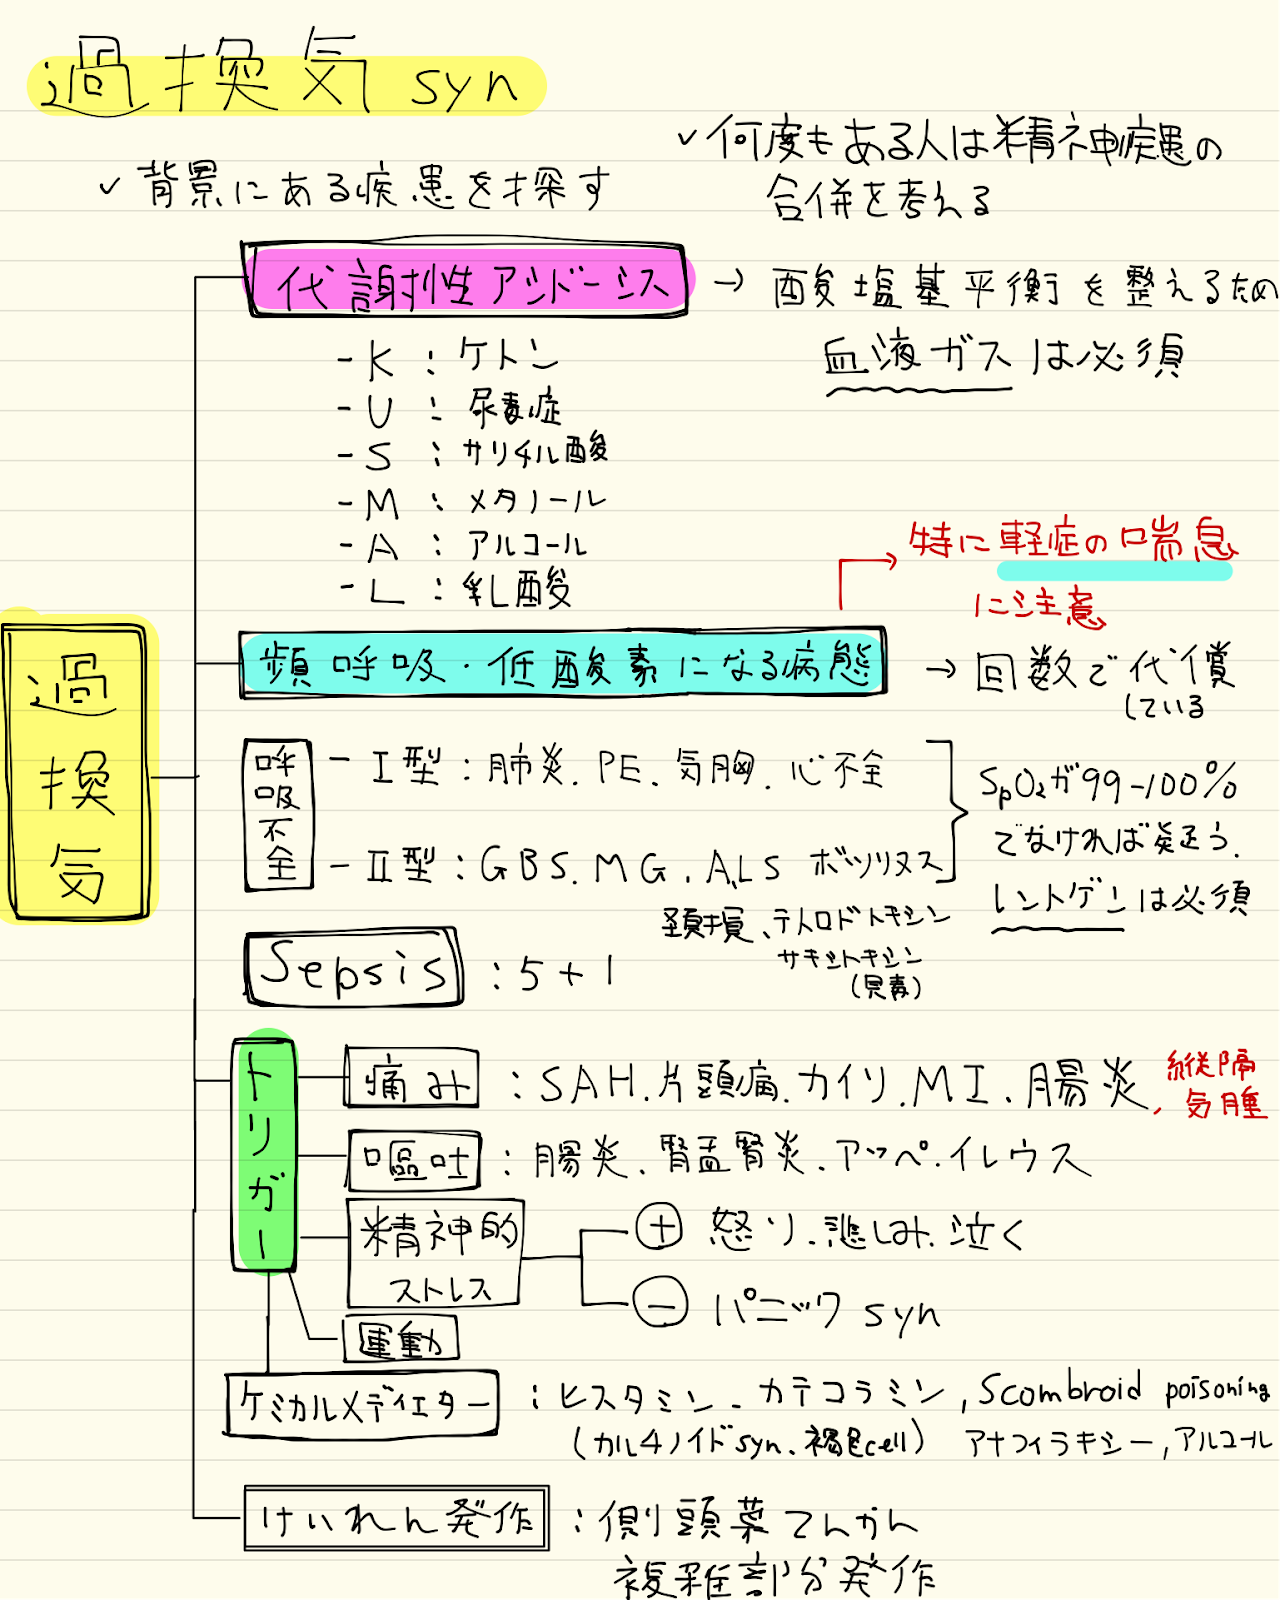 過換気 syn
✓ 背景にある疾患を探す
✓ 何度もある人は精神疾患の
合併を考える
代謝性アシドーシス → 酸塩基平衡を整えるため
血液ガスは必須
- K : ケトン
- U : 尿毒症
- S : サリチル酸
- M : メタノール
- A : アルコール
- L : 乳酸
特に軽症の喘息
に注意
過換気
頻呼吸・低酸素になる病態 → 回数で代償
している
呼吸不全
- I型 : 肺炎. PE. 気胸. 心不全
- II型 : GBS. MG. ALS ボツリヌス
頚損、テトロドトキシン
サキシトキシン
(貝毒)
SpO2が99-100%
でなければ疑う.
レントゲンは必須
Sepsis : 5+1
トリガー
痛み : SAH. 片頭痛. カイソ. MI. 腸炎, 縦隔
気腫
嘔吐 : 腸炎. 腎盂腎炎. アッペ. イレウス
精神的
ストレス
⊕ 怒り. 悲しみ. 泣く
⊖ パニック syn
運動
ケミカルメディエター : ヒスタミン. カテコラミン, Scombroid poisoning
(カルチノイドsyn. 褐色cell) アナフィラキシー, アルコール
けいれん発作 : 側頭葉てんかん
複雑部分発作